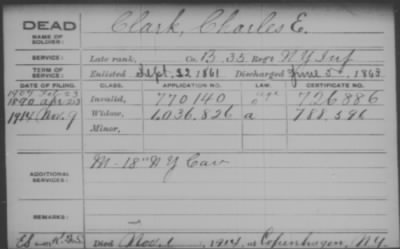 DEAD Clark, Charles E.
NAME OF SOLDIER:
SERVICE: Late rank, Co. B. 35 Reg't N.Y. Inf
TERM OF SERVICE: Enlisted Sept. 22 1861 Discharged June 5 1863
DATE OF FILING. CLASS. APPLICATION NO. LAW. CERTIFICATE NO.
1907 Feb 23
1890 Apr 23 Invalid, 770140 726886
1914 Nov. 9 Widow, 1,036,826 a 788,596
Minor,
M-18" N Y Cav
ADDITIONAL SERVICES:
REMARKS:
Died Nov. 1, 1914, at Copenhagen, N.Y.